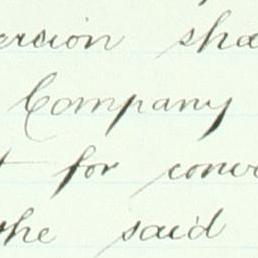 ersion sha
Company
t for conv
the said